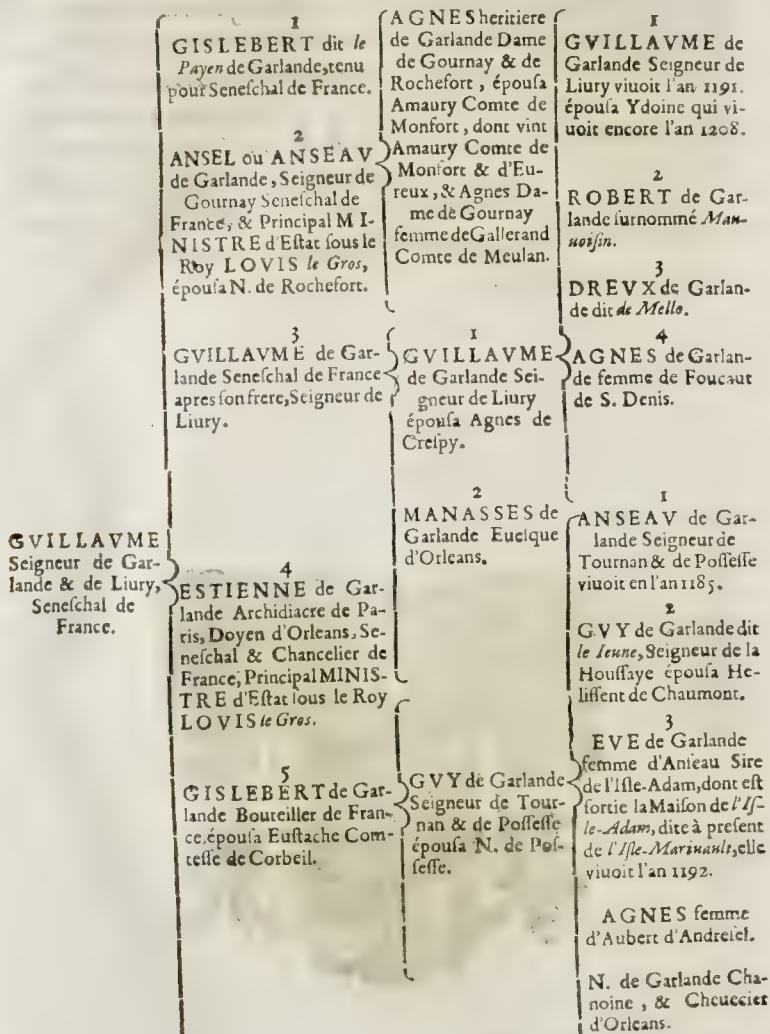 GVILLAVME
Seigneur de Gar-
lande & de Liury,
Seneſchal de
France.
1
GISLEBERT dit le
Payen de Garlande, tenu
pour Seneſchal de France.
2
ANSEL ou ANSEAV
de Garlande, Seigneur de
Gournay Seneſchal de
France, & Principal MI-
NISTRE d'Eſtat ſous le
Roy LOVIS le Gros,
épouſa N. de Rochefort.
3
GVILLAVME de Gar-
lande Seneſchal de France
apres ſon frere, Seigneur de
Liury.
4
ESTIENNE de Gar-
lande Archidiacre de Pa-
ris, Doyen d'Orleans, Se-
neſchal & Chancelier de
France, Principal MINIS-
TRE d'Eſtat ſous le Roy
LOVIS le Gros.
5
GISLEBERT de Gar-
lande Bouteiller de Fran-
ce, épouſa Euſtache Com-
teſſe de Corbeil.
AGNES heritiere
de Garlande Dame
de Gournay & de
Rochefort, épouſa
Amaury Comte de
Monfort, dont vint
Amaury Comte de
Monfort & d'Eu-
reux, & Agnes Da-
me de Gournay
femme de Gallerand
Comte de Meulan.
1
GVILLAVME
de Garlande Sei-
gneur de Liury
épouſa Agnes de
Creſpy.
2
MANASSES de
Garlande Eueſque
d'Orleans.
GVY de Garlande
Seigneur de Tour-
nan & de Poſſeſſe
épouſa N. de Poſ-
ſeſſe.
1
GVILLAVME de
Garlande Seigneur de
Liury viuoit l'an 1191.
épouſa Ydoine qui vi-
uoit encore l'an 1208.
2
ROBERT de Gar-
lande ſurnommé Mau-
uoiſin.
3
DREVX de Garlan-
de dit de Mello.
4
AGNES de Garlan-
de femme de Foucaut
de S. Denis.
1
ANSEAV de Gar-
lande Seigneur de
Tournan & de Poſſeſſe
viuoit en l'an 1185.
2
GVY de Garlande dit
le Ieune, Seigneur de la
Houſſaye épouſa He-
liſſent de Chaumont.
3
EVE de Garlande
femme d'Anſeau Sire
de l'Iſle-Adam, dont eſt
ſortie la Maiſon de l'Iſ-
le-Adam, dite à preſent
de l'Iſle-Mariuault, elle
viuoit l'an 1192.
AGNES femme
d'Aubert d'Andreſel.
N. de Garlande Cha-
noine, & Cheuecier
d'Orleans.